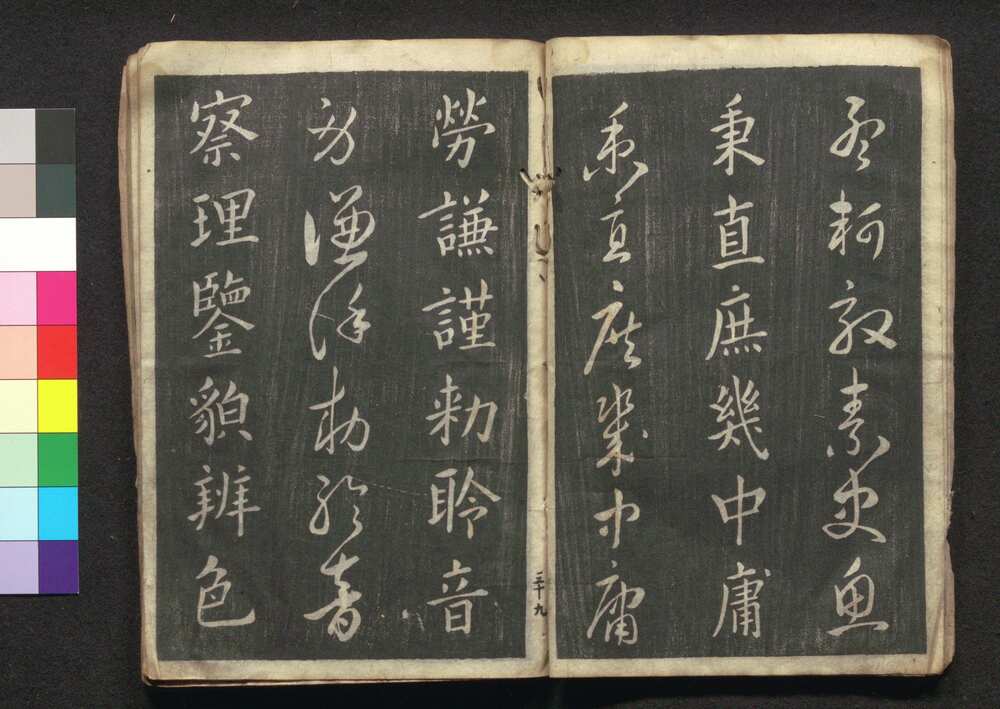 孟軻敦素史魚
秉直庶幾中庸
秉直庶幾中庸
勞謙謹勅聆音
勞謙謹勅聆音
察理鑒貌辨色
三十九